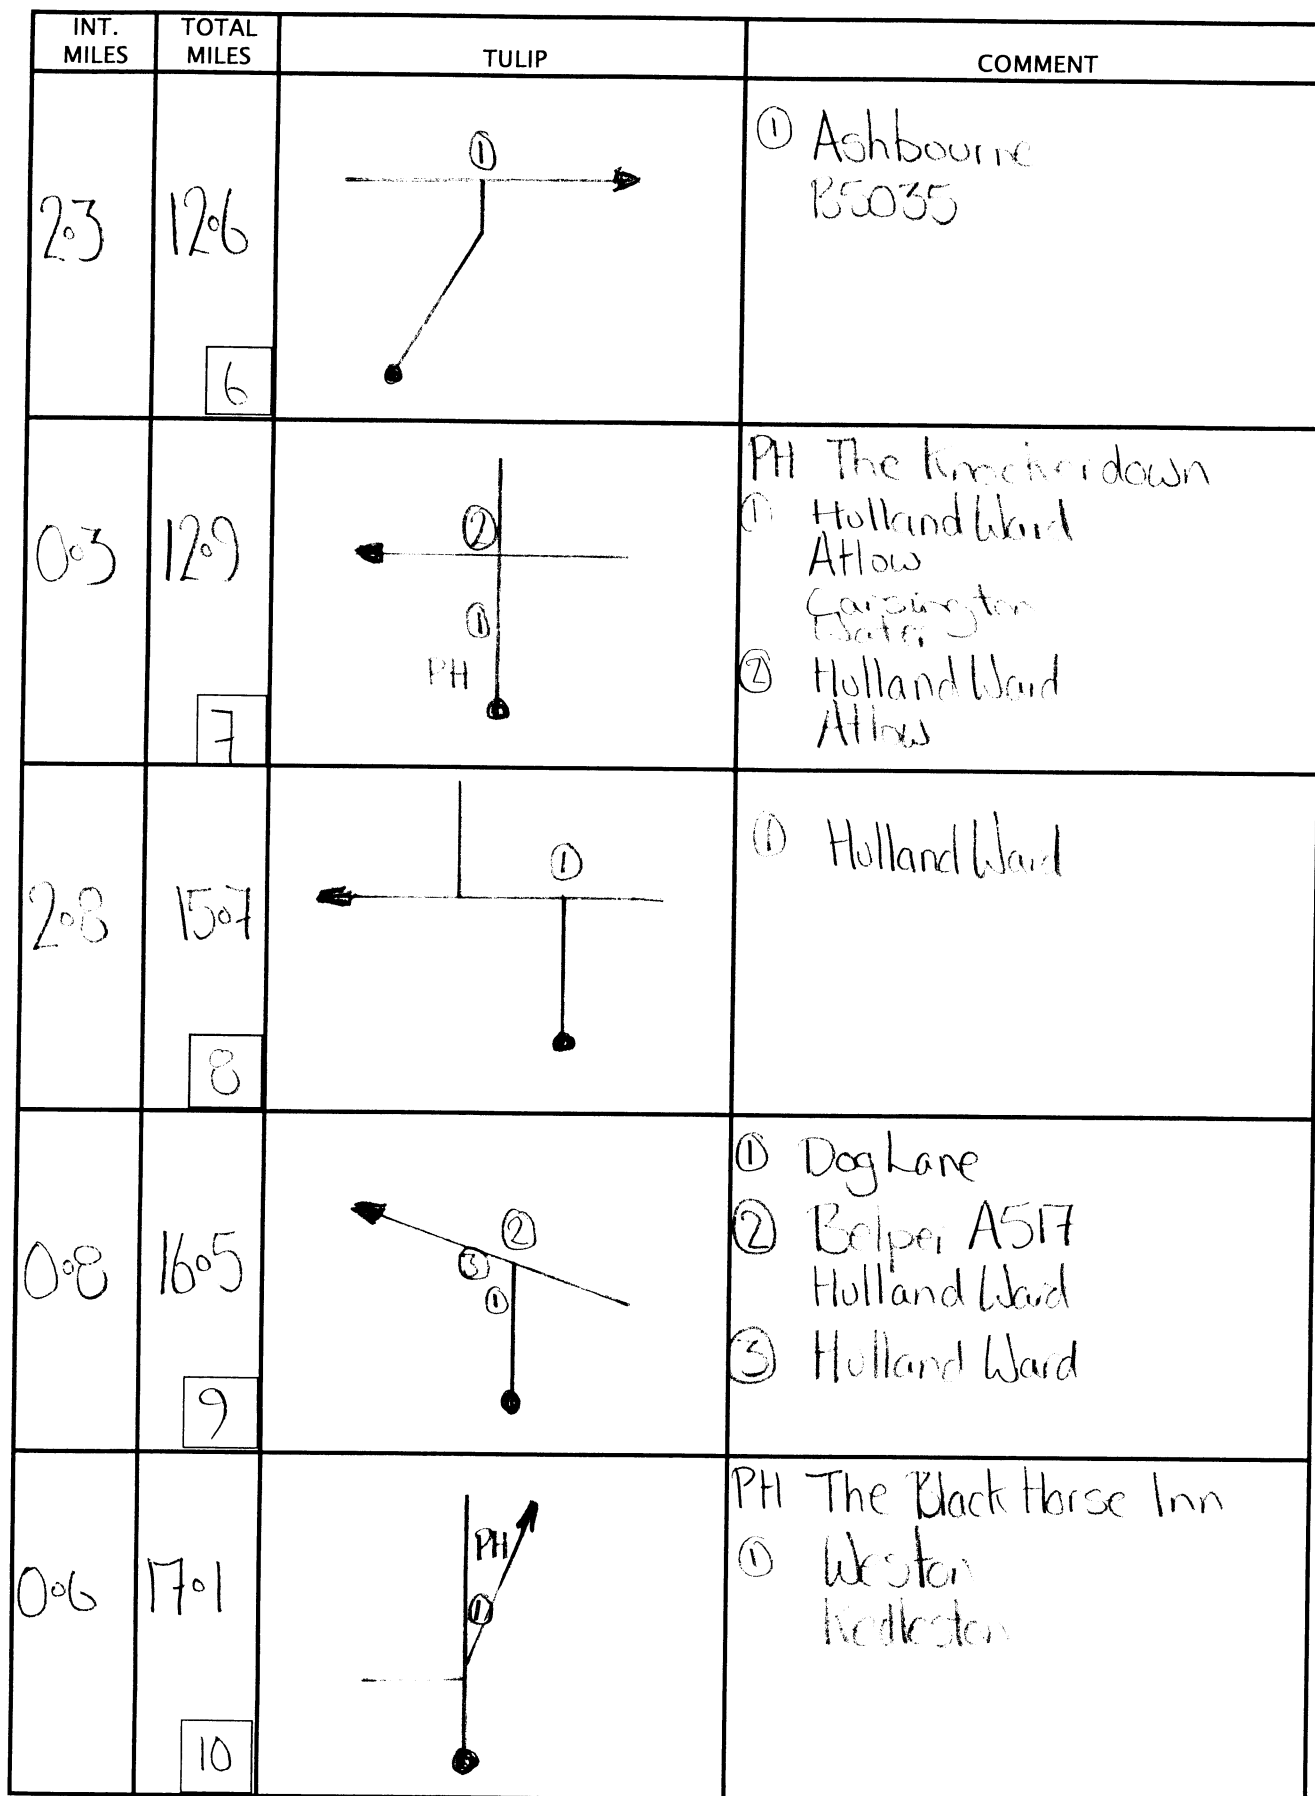 INT. MILES
TOTAL MILES
TULIP
COMMENT
2.3
12.6
6
①
① Ashbourne
B5035
0.3
12.9
7
②
①
PH
PH The Knockerdown
① Hulland Ward
Atlow
Carsington
Water
② Hulland Ward
Atlow
2.8
15.7
8
①
① Hulland Ward
0.8
16.5
9
②
③
①
① Dog Lane
② Belper A517
Hulland Ward
③ Hulland Ward
0.6
17.1
10
PH
①
PH The Black Horse Inn
① Weston
Kedleston